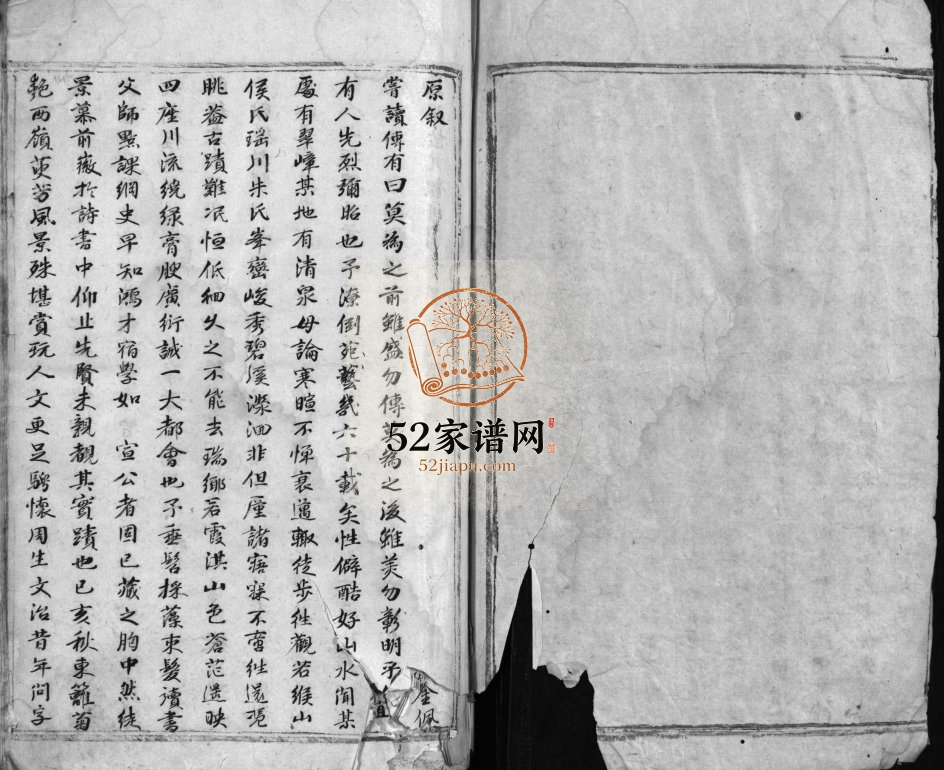 原叙
嘗讀傳有曰莫為之前雖盛勿傳莫為之後雖美勿彰明乎
有人先烈彌昭也予潦倒苑藝幾六十載矣性僻酷好山水聞某
處有翠嶂某地有清泉毋論寒暄不憚衰邁輒徒步徃觀若緱山
侯氏瑤川朱氏峯巒峻秀碧溪瀠泗非但厪諸寤寐不啻徃還
眺盤古蹟難泯恒低細久之不能去瑞鄉若霞淇山色蒼茫遥映
四座川流繞綠膏腴廣衍誠一大都會也予垂髫採藻束髮讀書
父師點課綱史早知鴻才宿學如 宣公者固已藏之胸中然徒
景慕前徽扵詩書中仰止先賢未親覩其實蹟也已亥秋東籬菊
艷西嶺芳風景殊堪賞玩人文更足騁懷周生文治昔年問字
金佩
52家谱网
52jiapu.com